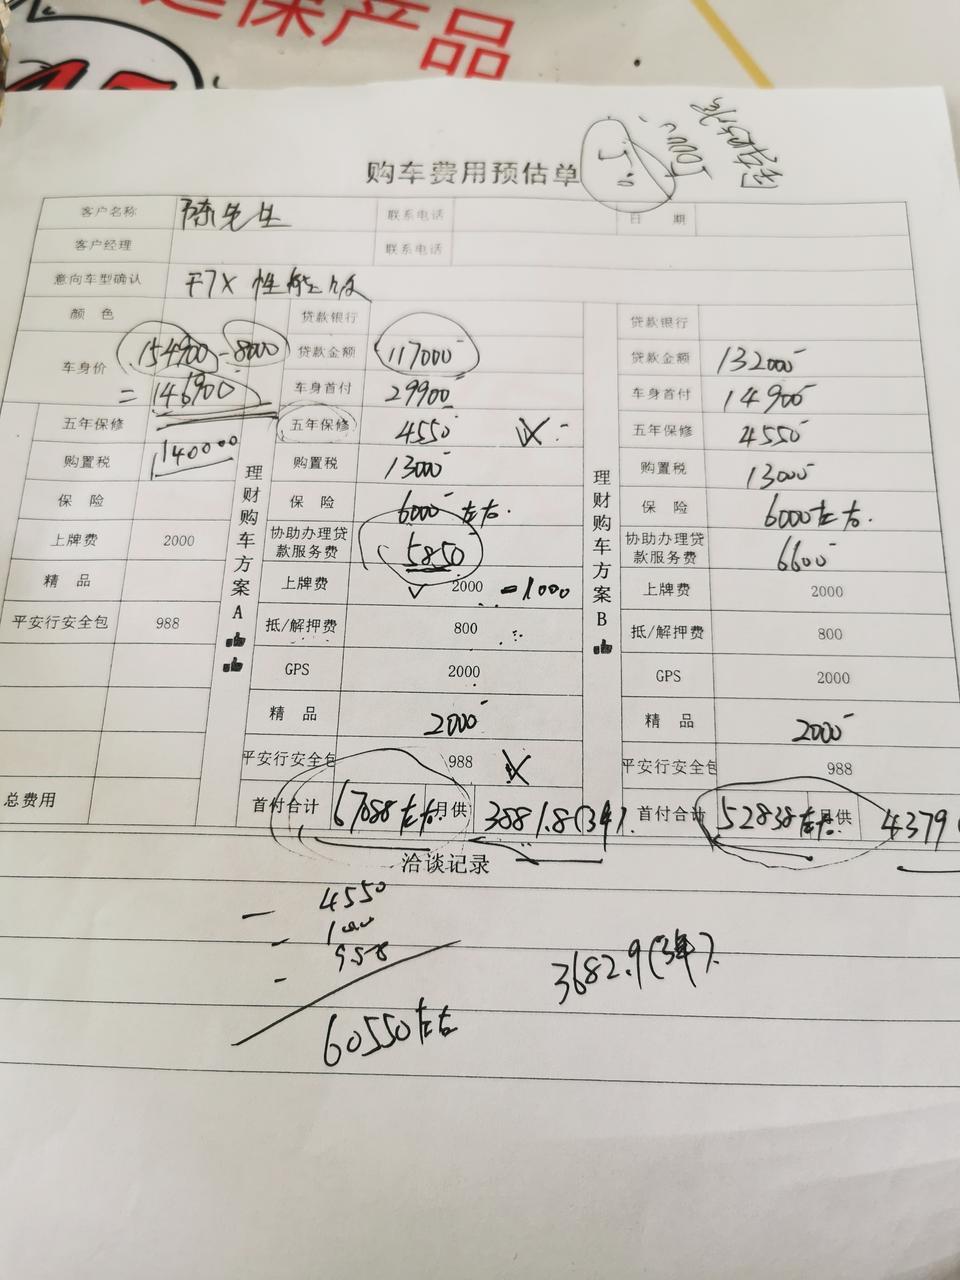 延保产品
购车费用预估单
5000
客户名称 陈先生 联系电话 日 期
客户经理 联系电话
意向车型确认 干7X 性能版
颜 色 贷款银行 贷款银行
车身价 154900-8000 贷款金额 117000 贷款金额 132000
=146900 车身首付 29900 车身首付 14900
五年保修 五年保修 4550 五年保修 4550
140000
购置税 购置税 13000 购置税 13000
保 险 保 险 6000左右 保 险 6000左右.
上牌费 2000 协助办理贷款服务费 5850 协助办理贷款服务费 6600
精 品 上牌费 2000 -1000 上牌费 2000
平安行安全包 988 抵/解押费 800 抵/解押费 800
GPS 2000 GPS 2000
精 品 2000 精 品 2000
平安行安全包 988 平安行安全包 988
理财购车方案A
理财购车方案B
总费用 首付合计 67088左右. 月供 3881.8(3年). 首付合计 52838左右. 月供 4379
洽谈记录
- 4550
- 1000
- 988
3682.9(3年).
60550左右